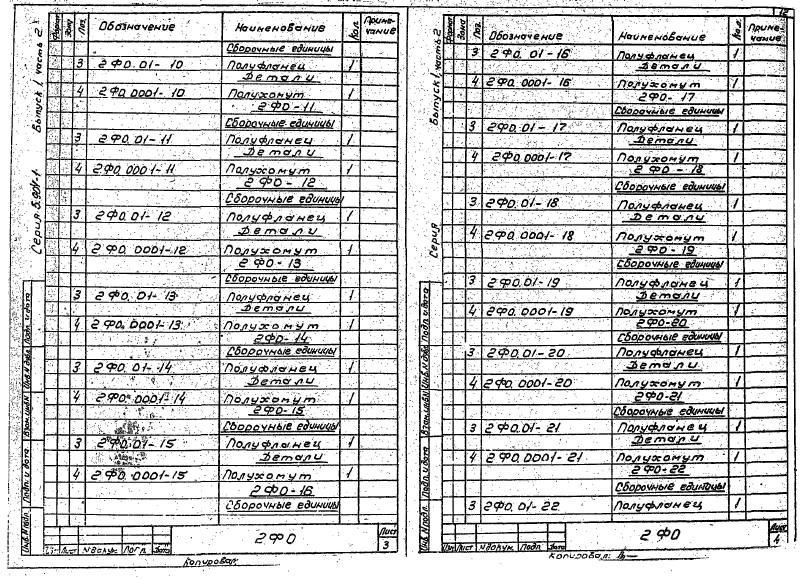 Формат Зона Поз. Обозначение Наименование Кол. Примечание
Сборочные единицы
3 2Ф0.01-10 Полуфланец 1
Детали
4 2Ф0.0001-10 Полухомут 1
2Ф0-11
Сборочные единицы
3 2Ф0.01-11 Полуфланец 1
Детали
4 2Ф0.0001-11 Полухомут 1
2Ф0-12
Сборочные единицы
3 2Ф0.01-12 Полуфланец 1
Детали
4 2Ф0.0001-12 Полухомут 1
2Ф0-13
Сборочные единицы
3 2Ф0.01-13 Полуфланец 1
Детали
4 2Ф0.0001-13 Полухомут 1
2Ф0-14
Сборочные единицы
3 2Ф0.01-14 Полуфланец 1
Детали
4 2Ф0.0001-14 Полухомут 1
2Ф0-15
Сборочные единицы
3 2Ф0.01-15 Полуфланец 1
Детали
4 2Ф0.0001-15 Полухомут 1
2Ф0-16
Сборочные единицы
2Ф0
Лист
3
Изм Лист № докум. Подп. Дата
Копировал
Серия 5.904-1 Выпуск 1 часть 2
Инв.№ подл. Подп. и дата Взам.инв.№ Инв.№ дубл. Подп. и дата
12
Формат Зона Поз. Обозначение Наименование Кол. Примечание
3 2Ф0.01-16 Полуфланец 1
Детали
4 2Ф0.0001-16 Полухомут 1
2Ф0-17
Сборочные единицы
3 2Ф0.01-17 Полуфланец 1
Детали
4 2Ф0.0001-17 Полухомут 1
2Ф0-18
Сборочные единицы
3 2Ф0.01-18 Полуфланец 1
Детали
4 2Ф0.0001-18 Полухомут 1
2Ф0-19
Сборочные единицы
3 2Ф0.01-19 Полуфланец 1
Детали
4 2Ф0.0001-19 Полухомут 1
2Ф0-20
Сборочные единицы
3 2Ф0.01-20 Полуфланец 1
Детали
4 2Ф0.0001-20 Полухомут 1
2Ф0-21
Сборочные единицы
3 2Ф0.01-21 Полуфланец 1
Детали
4 2Ф0.0001-21 Полухомут 1
2Ф0-22
Сборочные единицы
3 2Ф0.01-22 Полуфланец 1
2Ф0
Лист
4
Изм Лист № докум. Подп. Дата
Копировал:
Серия Выпуск 1 часть 2
Инв.№ подл. Подп. и дата Взам.инв.№ Инв.№ дубл. Подп. и дата